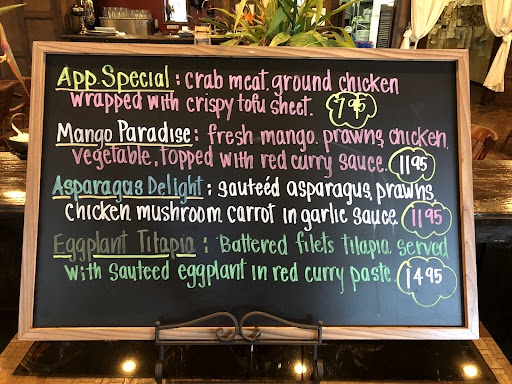 App. Special : crab meat. ground chicken
wrapped with crispy tofu sheet. 7.95
Mango Paradise : fresh mango. prawns, chicken,
vegetable, topped with red curry sauce. 11.95
Asparagus Delight : sauteéd asparagus, prawns,
chicken, mushroom, carrot in garlic sauce. 11.95
Eggplant Tilapia : Battered filets tilapia served
with sauteed eggplant in red curry paste. 14.95